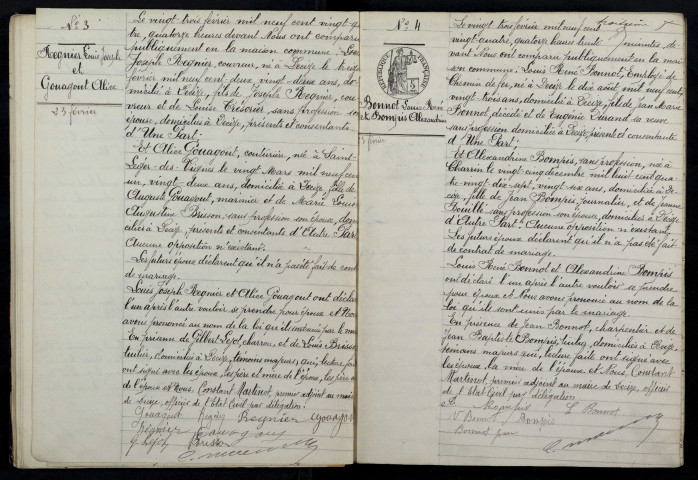 No 3
Regnier Louis Joseph
et
Gouagout Alice
23 février
Le vingt trois février mil neuf cent vingt qua
tre, quatorze heures devant Nous ont comparu
publiquement en la maison commune. Louis
Joseph Regnier, couvreur, né à Decize le treize
février mil neuf cent deux, vingt-deux ans, do
micilié à Decize, fils de Joseph Regnier, cou
vreur et de Louise Crésoier sans profession son
épouse, domiciliés à Decize, présents et consentants
d'Une Part:
Et Alice Gouagout, couturière, née à Saint
Léger-des-Vignes le vingt Mars mil neuf cent
un, vingt-deux ans, domiciliée à Decize, fille de
Auguste Gouagout, marinier et de Marie Louise
Augustine Brisson, sans profession son épouse, domi
ciliés à Decize, présents et consentants d'Autre Part
Aucune opposition n'existant.
Les futurs époux déclarent qu'il n'a pas été fait de con
de mariage.
Louis Joseph Regnier et Alice Gouagout ont déclaré
l'un après l'autre vouloir se prendre pour époux et Nous
avons prononcé au nom de la loi qu'ils sont unis par le ma
En présence de Gilbert Lejot, charron, et de Louis Brisson
domiciliés à Decize, témoins majeurs, qui, lecture faite
ont signé avec les époux, les père et mère de l'époux, les père
de l'épouse et Nous, Constant Martinot, premier adjoint au maire
de Decize, officier de l'Etat Civil par délégation.
Gouagout Regnier Regnier Gouagout
Regnier Gouagout
G Lejot Brisson
No 4
RÉPUBLIQUE FRANÇAISE
Bonnot Louis René
et Bompis Alexandrine
Le vingt trois février mil neuf cent
vingt-quatre, quatorze heures trente minutes, de
vant Nous ont comparu publiquement en la mai
son commune. Louis René Bonnot, Employé de
Chemin de fer, né à Decize le dix août mil neuf cent,
vingt-trois ans, domicilié à Decize, fils de Jean Marie
Bonnot, décédé et de Eugénie Durand sa veuve
sans profession domiciliée à Decize, présente et consentante
d'Une Part;
Et Alexandrine Bompis, sans profession, née à
Charrin le vingt-cinq décembre mil huit cent qua
tre vingt dix sept, vingt-six ans, domiciliée à De
cize, fille de Jean Bompis, journalier, et de Jeanne
Bouillé sans profession son épouse, domiciliés à Decize
d'Autre Part; Aucune opposition n'existant,
Les futurs époux déclarent qu'il n'a pas été fait
de contrat de mariage.
Louis René Bonnot et Alexandrine Bompis
ont déclaré l'un après l'autre vouloir se prendre
pour époux et Nous avons prononcé au nom de la
loi qu'ils sont unis par le mariage.
En présence de Jean Bonnot, charpentier et de
Jean Baptiste Bompis, domiciliés à Decize,
témoins majeurs qui, lecture faite ont signé avec
les époux, la mère de l'époux et Nous, Constant
Martinot, premier adjoint au maire de Decize, officier
de l'Etat Civil par délégation
Bompis L Bonnot
Vve Bonnot Bompis
Bonnot Jean